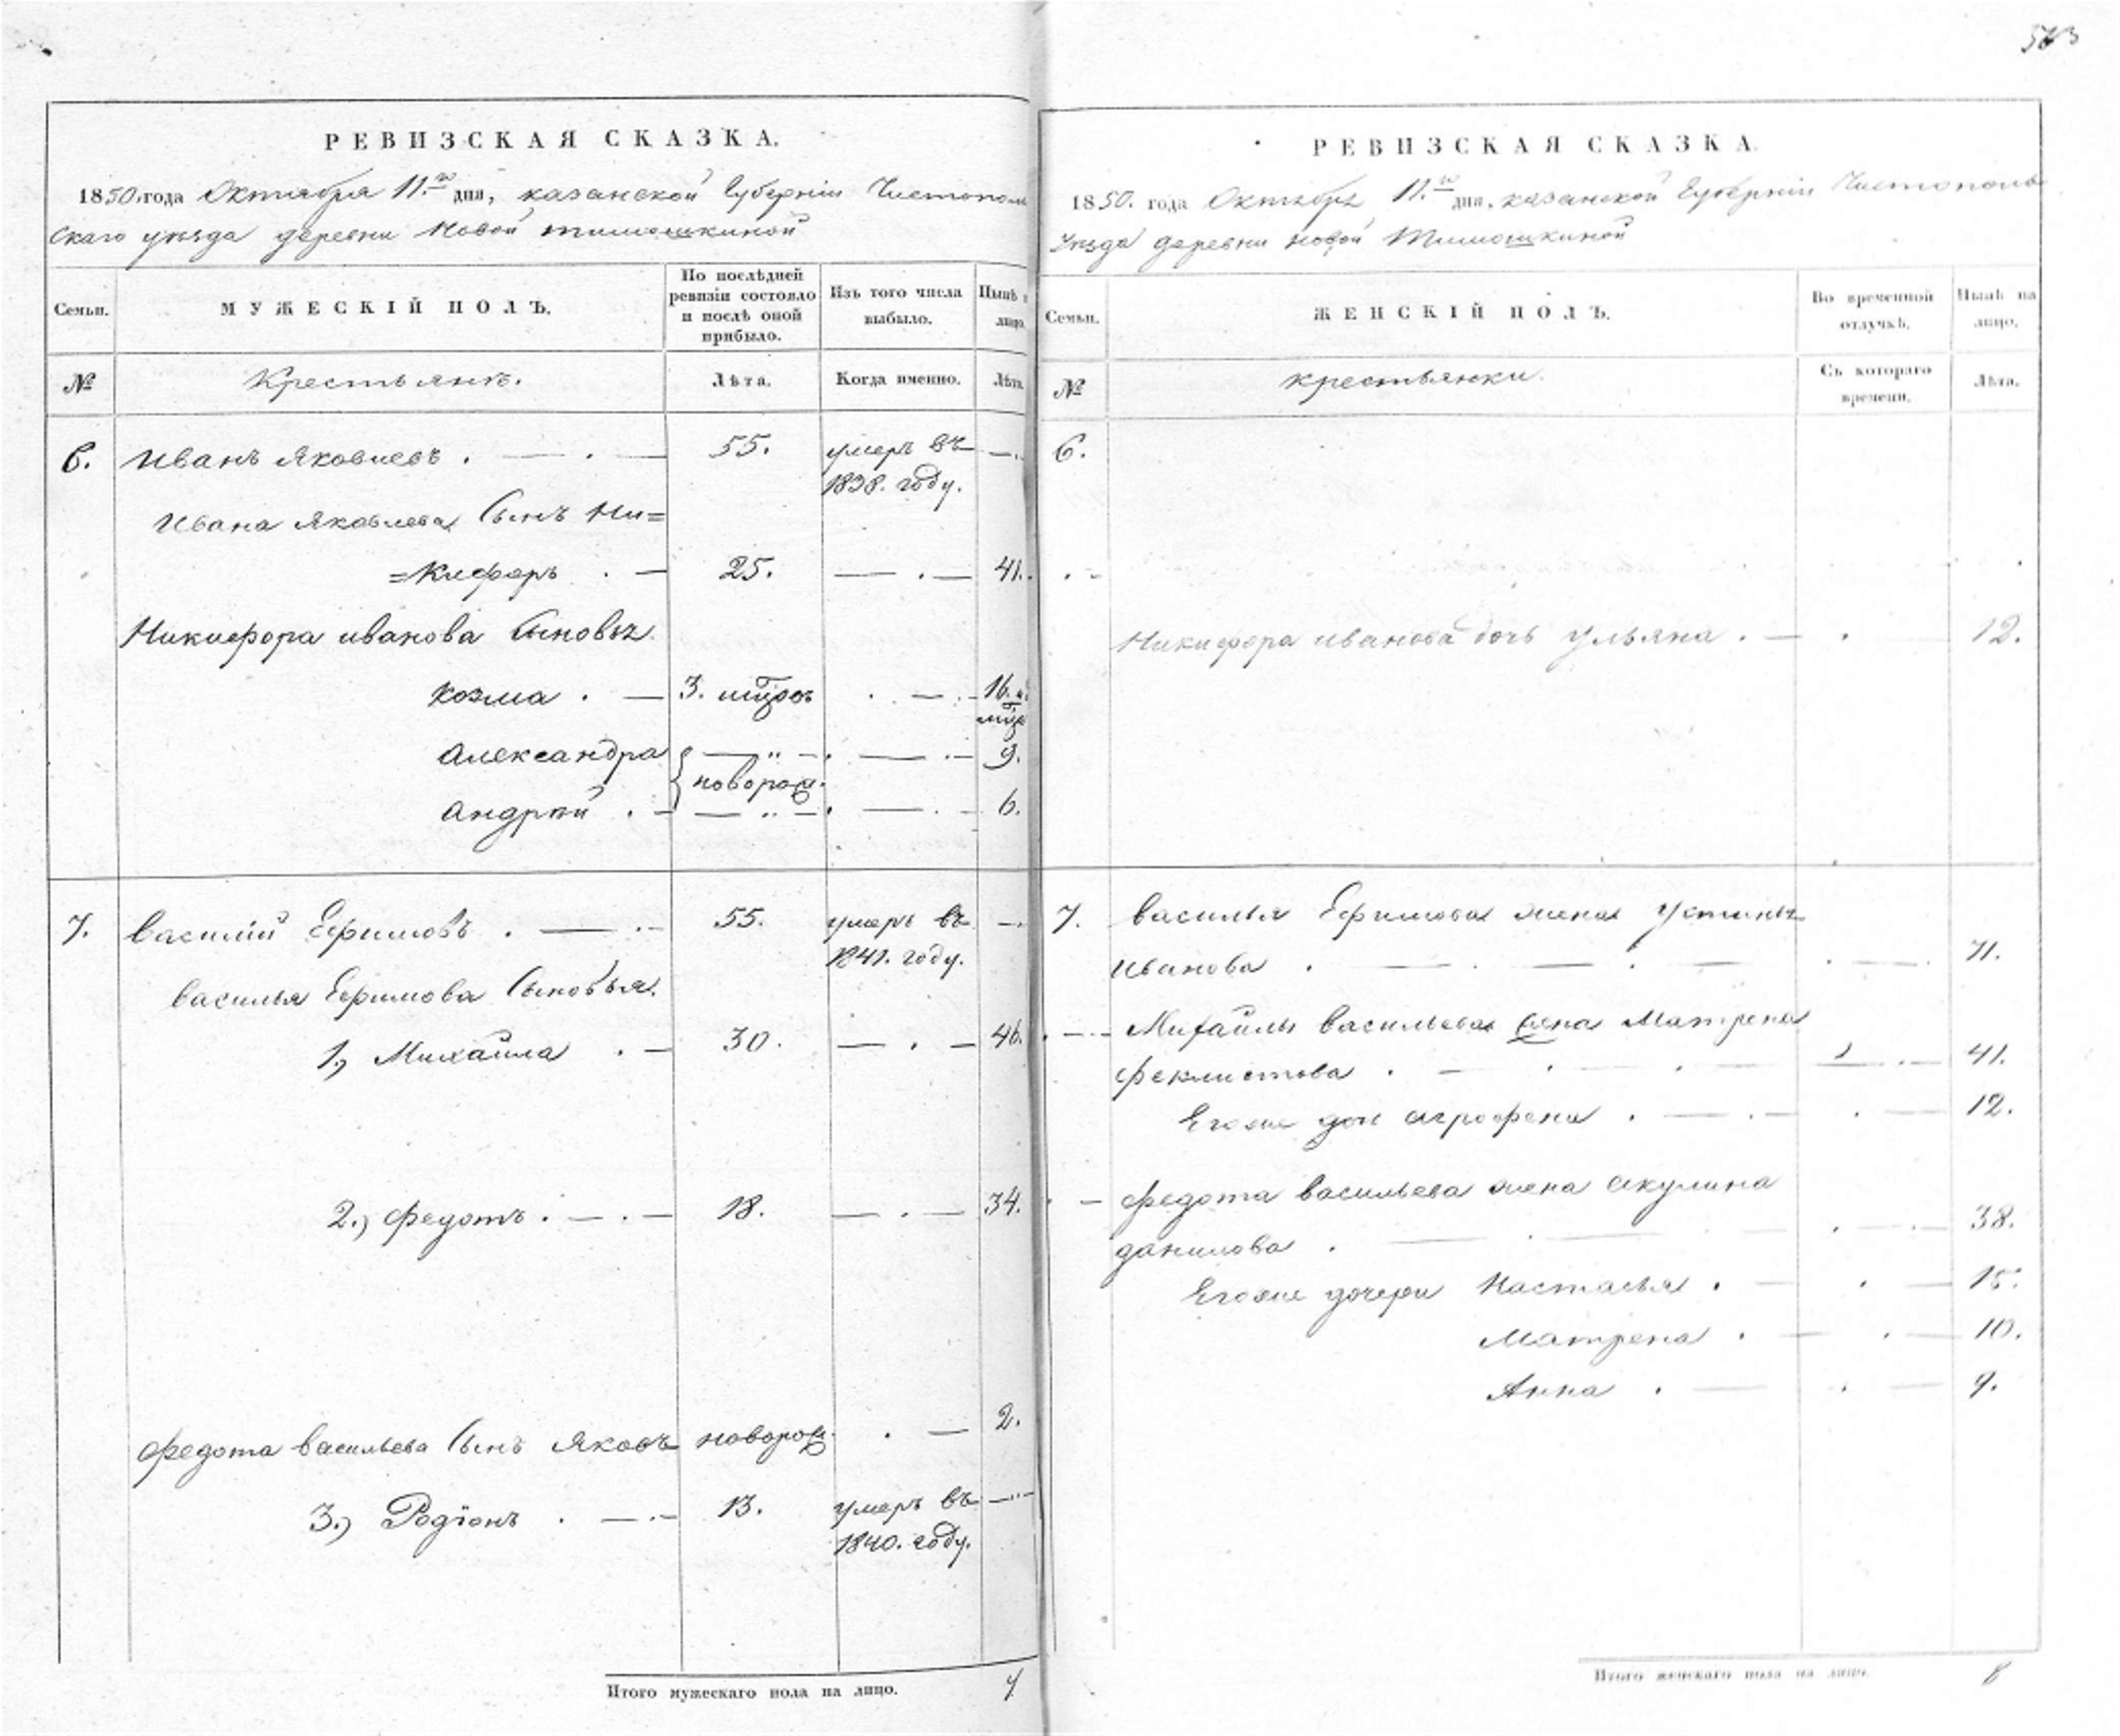 РЕВИЗСКАЯ СКАЗКА.
1850. года Октября 11.го дня, казанской Губерніи Чистополь
скаго уѣзда деревни Новой тимошкиной
Семьи.
МУЖЕСКІЙ ПОЛЪ.
По послѣдней
ревизіи состояло
и послѣ оной
прибыло.
Изъ того числа
выбыло.
Нынѣ
лицо.
№
Крестьянъ.
Лѣта.
Когда именно.
Лѣта.
6. Иванъ Яковлевъ . — . — 55. умеръ въ —.
1838. году.
Ивана Яковлева Сынъ Ни=
=Кифоръ . — 25. — . — 41.
Никифора иванова Сыновья
Козма . — 3. мцов . — . 16. и
мца
Александра — „ — . — . — 9.
новорож.
Андрѣй . — — „ — . — . — 6.
7. Василій Ефимовъ . — . — 55. умеръ въ —.
1841. году.
Василья Ефимова Сыновья.
1., Михайла . — 30. — . — 46.
2., Федотъ . — . — 18. — . — 34.
Федота Васильева Сынъ Яковъ новорож. . — 2.
3., Родіонъ . — . — 13. умеръ въ —
1840. году.
Итого мужескаго пола на лицо. 7
563
РЕВИЗСКАЯ СКАЗКА.
1850. года Октября 11.го дня. казанской Губерніи Чистополь
Уѣзда деревни новой Тимошкиной
Семьи.
ЖЕНСКІЙ ПОЛЪ.
Во временной
отлучкѣ.
Нынѣ на
лицо.
№
крестьянки.
Съ котораго
времени.
Лѣта.
6.
Никифора иванова дочь Ульяна . — . 12.
7. Василья Ефимова жена Устинья
Иванова . — . — . — . — . 71.
Михайлы Васильева жена Матрена
Феклистова . — . . — . — 41.
Егоже доч агрофена . — . — . — 12.
Федота Васильева жена Акулина
данилова . — . — . — . — 38.
Егоже дочери Настасья . — . — 15.
Матрена . — . — 10.
Анна . — . — 9.
Итого женскаго пола на лицо. 8